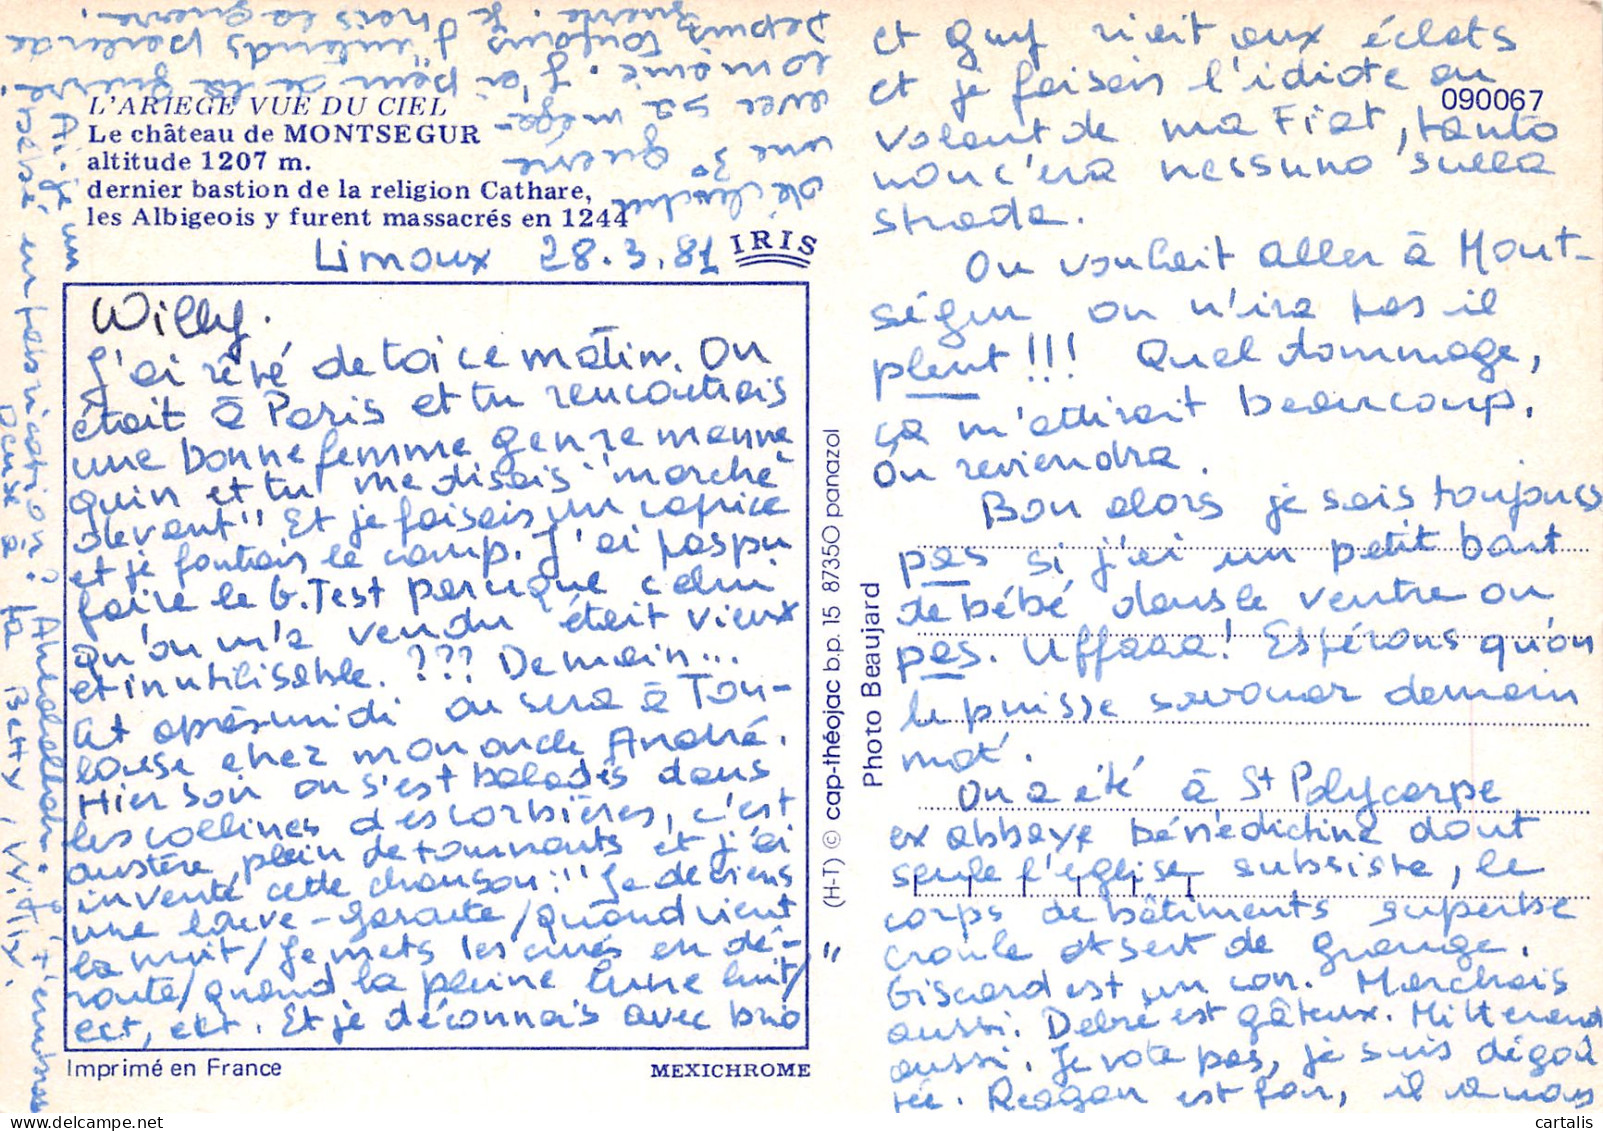 L'ARIEGE VUE DU CIEL
Le château de MONTSEGUR
altitude 1207 m.
dernier bastion de la religion Cathare,
les Albigeois y furent massacrés en 1244
IRIS
Limoux 28.3.81
Willy.
J'ai rêvé de toi ce matin. On
était à Paris et tu rencontrais
une bonne femme genre manne
quin et tu me disais "marche
devant" Et je faisais un caprice
et je foutais le camp. J'ai pas pu
faire le G.Test parceque celui
qu'on m'a vendu était vieux
et inutilisable. ??? Demain...
Cet après-midi on sera à Tou-
louse chez mon oncle André.
Hier soir on s'est baladés dans
les collines des corbières, c'est
austère plein de tournants et j'ai
inventé cette chanson: "Je deviens
une louve-garoute/quand vient
la nuit/Je mets les curés en dé-
route/quand la pleine lune luit/
ect, ect. Et je déconnais avec brio
et Guy riait aux éclats
et je faisais l'idiote au
volant de ma Fiat, tanto
non c'era nessuno sulla
strada.
090067
On voulait aller à Mont-
ségur on n'ira pas il
pleut!!! Quel dommage,
ça m'attirait beaucoup.
On reviendra.
Bon alors je sais toujours
pas si j'ai un petit bout
de bébé dans le ventre ou
pas. Uffaaa! Espérons qu'on
le puisse savouar demain
mat.
On a été à St Polycarpe
ex abbaye bénédictine dont
seule l'église subsiste, le
corps de bâtiments superbe
croule et sert de grange.
Giscard est un con. Marchais
aussi. Debré est gâteux. Mitterand
aussi. Je vote pas, je suis dégoû
tée. Reagan est fou, il a nous
déclenché
une 3° guerre
avec sa méga-
lomanie. J'ai peur de la guerre
Depuis toujours j'entends parler de
guerre. Je hais la guerre.
Ai-je un bébé en fabrication?
Pense à ta Betty, Willy.
Imprimé en France
MEXICHROME
(H-T) © cap-théojac b.p. 15 87350 panazol
Photo Beaujard
cartalis.com